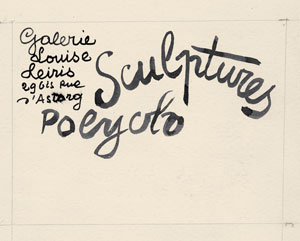 Galerie
Louise
Leiris
29 bis Rue
d'Astorg
Sculptures
Polycro